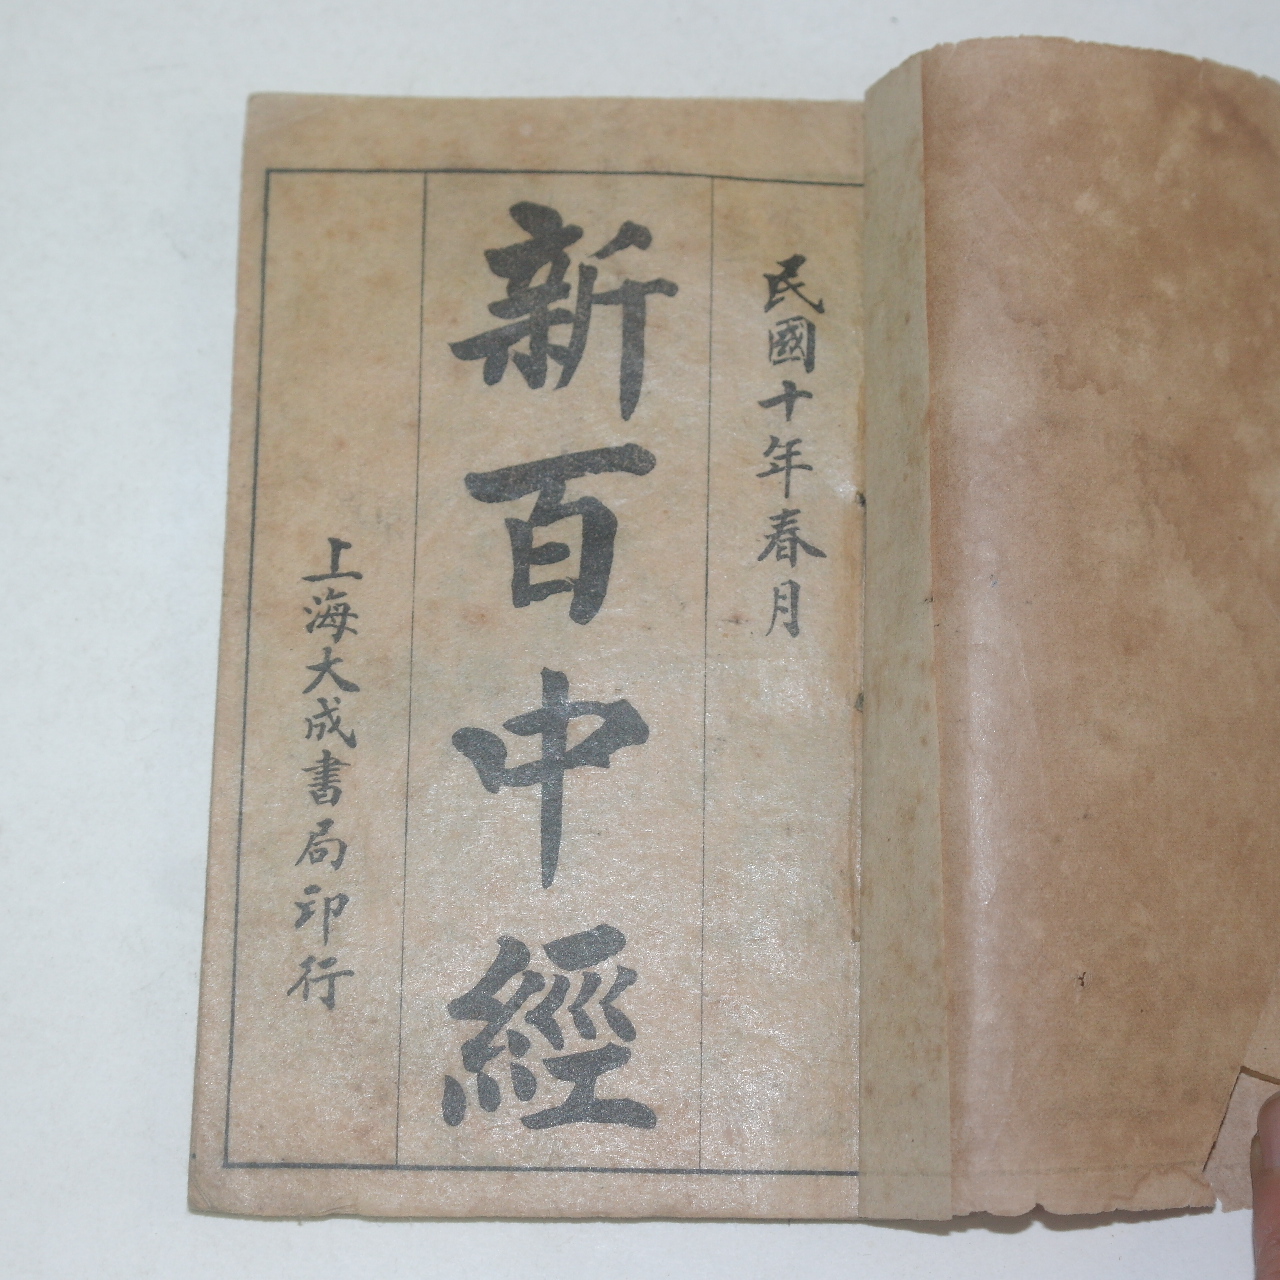 民國十年春月
新百中經
上海大成書局印行